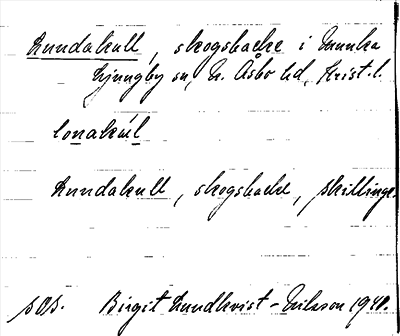 Lundakull, skogsbacke i Munka
Ljungby sn, N. Åsbo hd, Krist. l.
lonakúl
Lundakull, skogsbacke, Skillinge.
sOs. Birgit Lundkvist-Eriksson 1940.